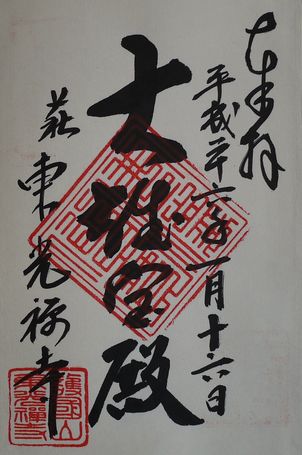 奉拝
平成二十六年一月十六日
大雄宝殿
萩東光禅寺
護國山
東光禪寺